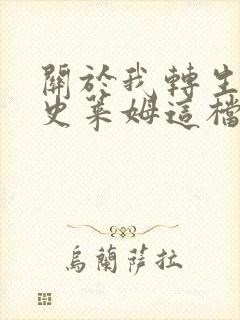 關於我轉生
史萊姆這檔
烏蘭薩拉